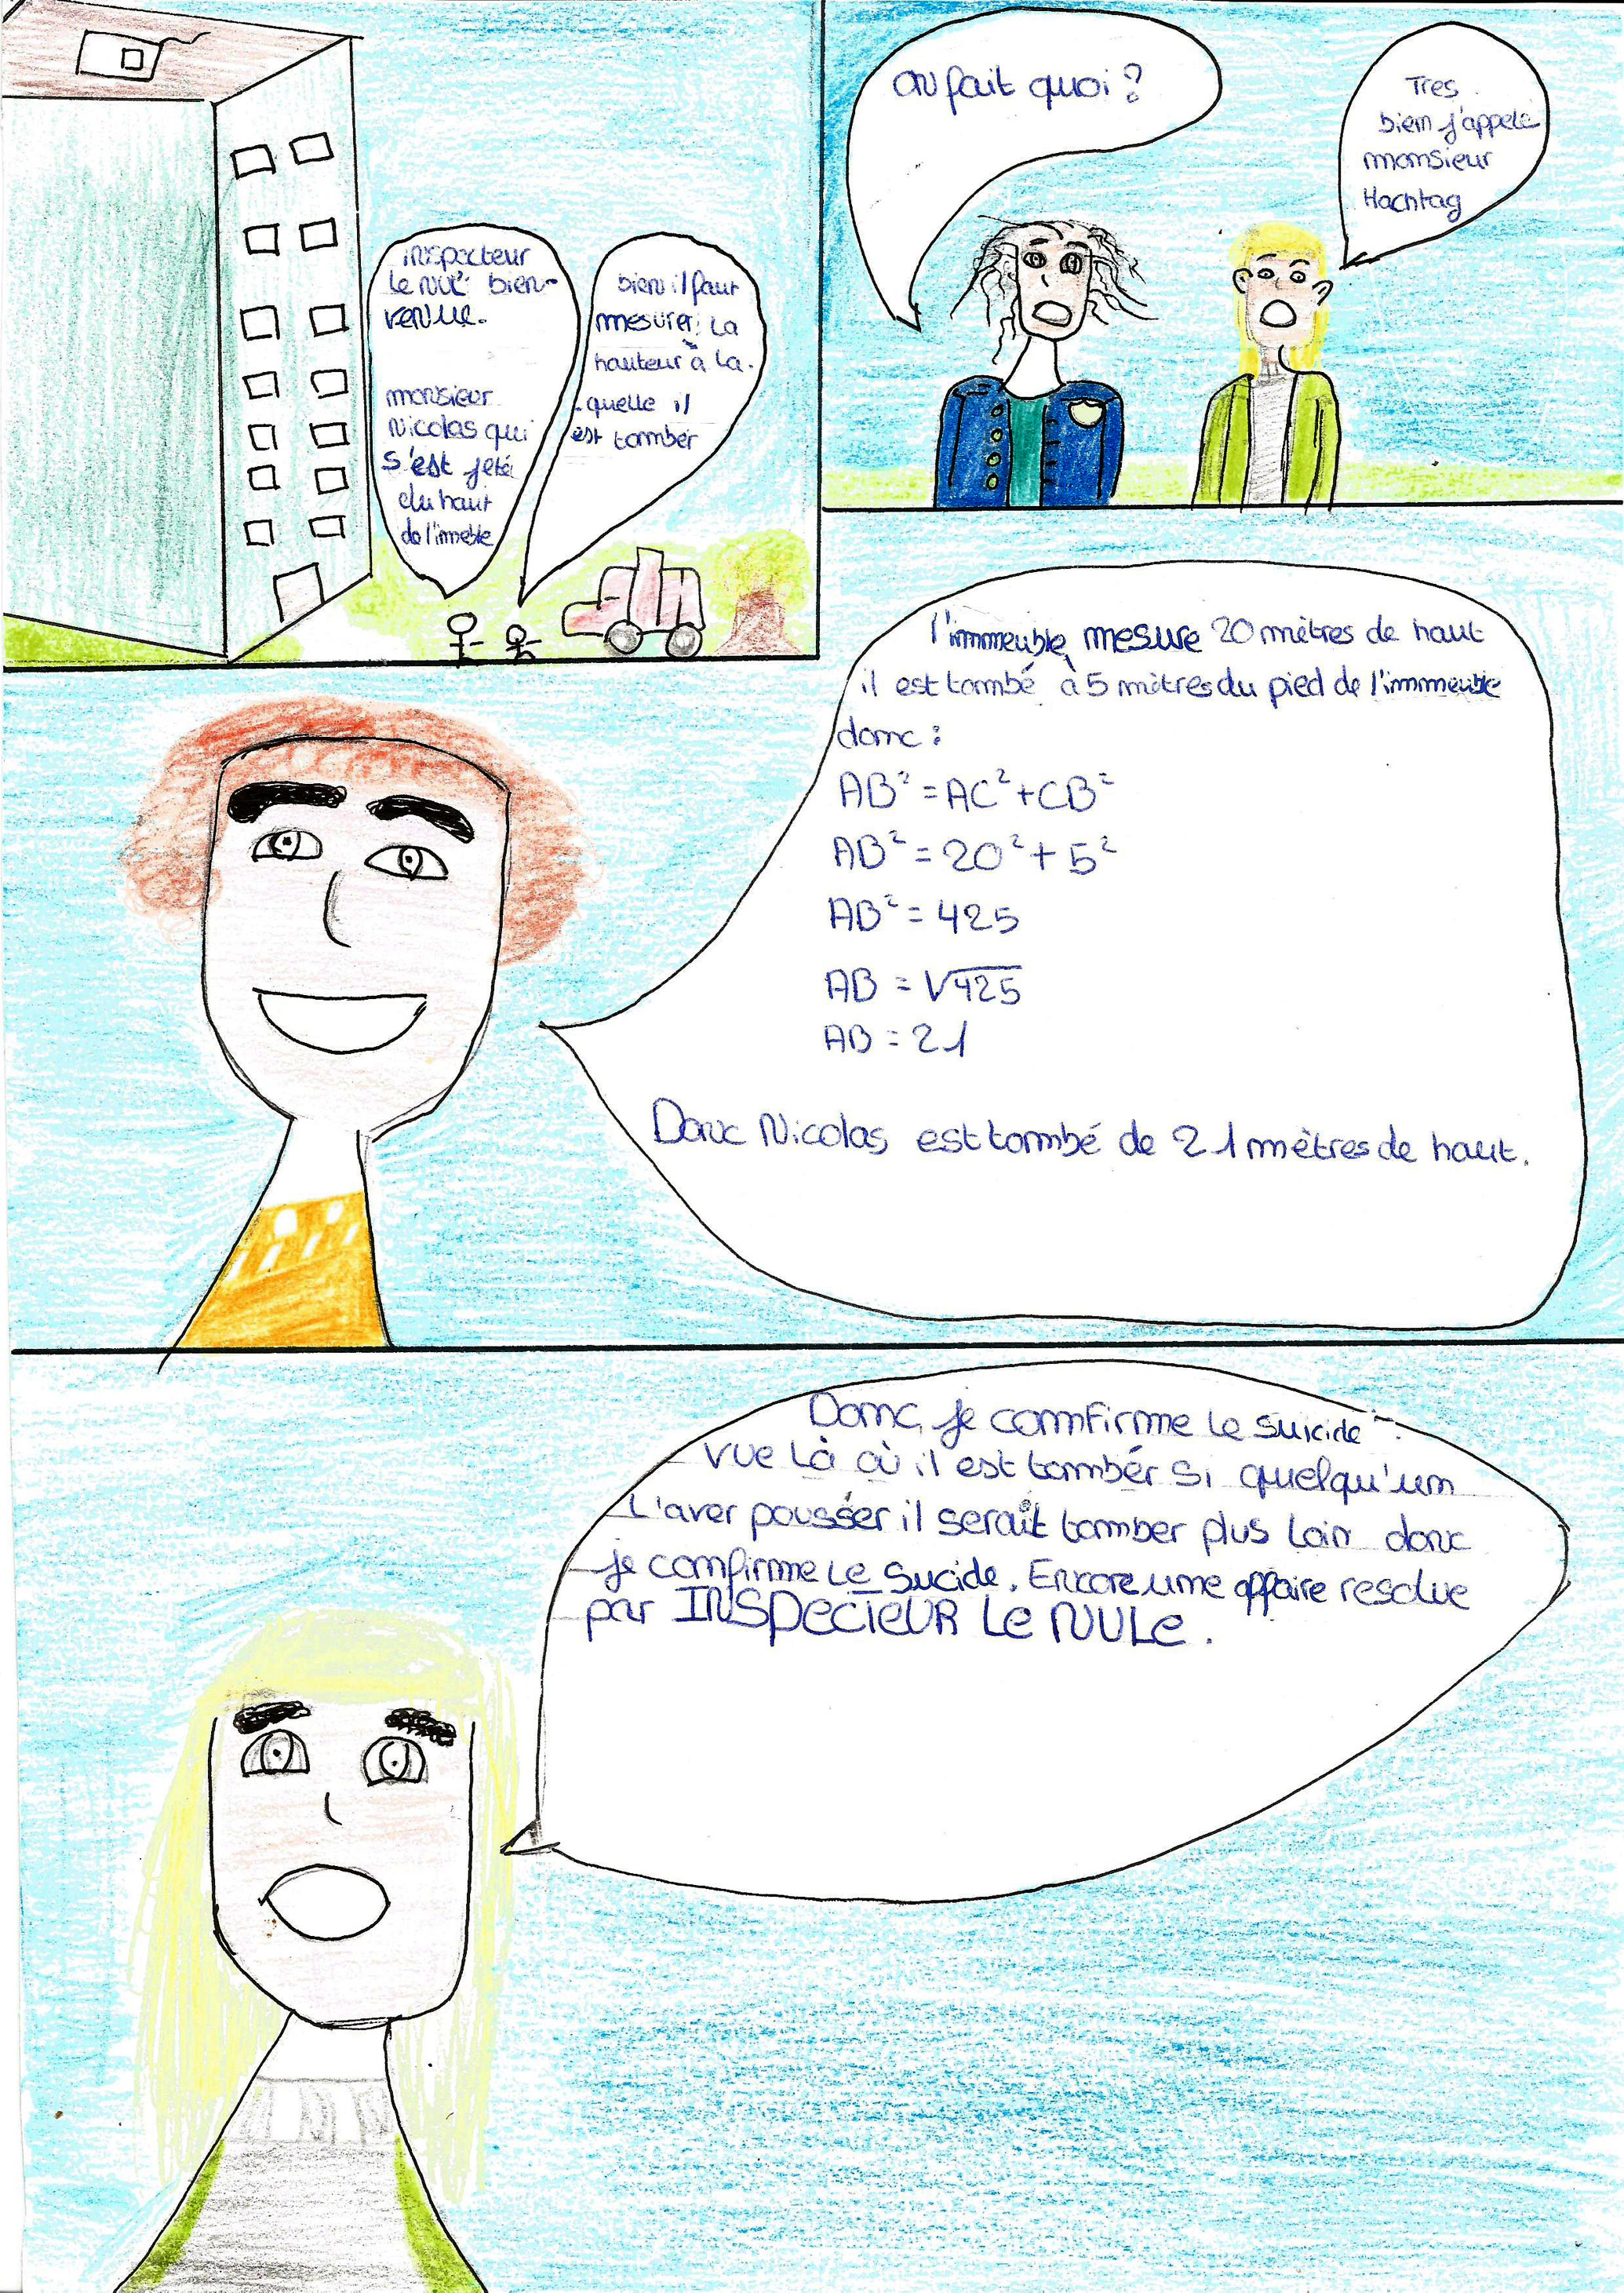 inspecteur
le NUL bien-
venue.
monsieur
Nicolas qui
s'est jeté
du haut
de l'imeble
bien il faut
mesurer la
hauteur à la
quelle il
est tomber
on fait quoi ?
Tres
bien j'appele
monsieur
Hachtag
l'immeuble mesure 20 mètres de haut
il est tombé à 5 mètres du pied de l'immeuble
donc :
AB² = AC² + CB²
AB² = 20² + 5²
AB² = 425
AB = √425
AB = 21
Donc Nicolas est tombé de 21 mètres de haut.
Donc, je comfirme le suicide
vue là où il est tombér si quelqu'un
l'aver pousser il serait tomber plus loin donc
je comfirme le sucide. Encore une affaire resolue
par INSPECIEUR Le NULe.